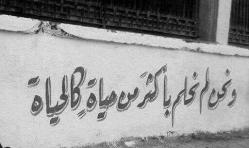 ونحن لم نحلم بأكثر من حياةٍ كالحياة